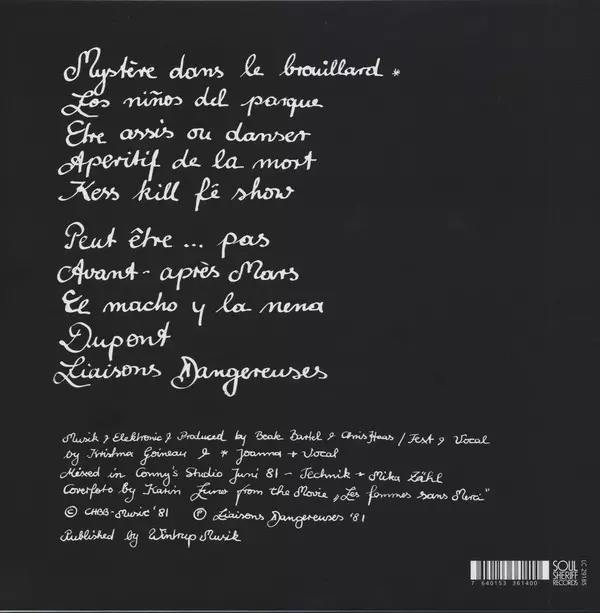 Mystère dans le brouillard *
Los niños del parque
Etre assis ou danser
Aperitif de la mort
Kess kill fê show
Peut être ... pas
Avant-après Mars
El macho y la nena
Dupont
Liaisons Dangereuses
Musik & Elektronic & Produced by Beate Bartel & Chris Haas / Text & Vocal
by Krishna Goineau & * Joanna + Vocal
Mixed in Conny's Studio Juni 81 - Technik + Mika Zähl
Coverfoto by Karin from the Movie „Les femmes sans Merci"
© CHBB-Music '81 ℗ Liaisons Dangereuses '81
Published by Wintrup Musik
SOUL
SHERIFF
RECORDS
LC 29185
7 640153 361400